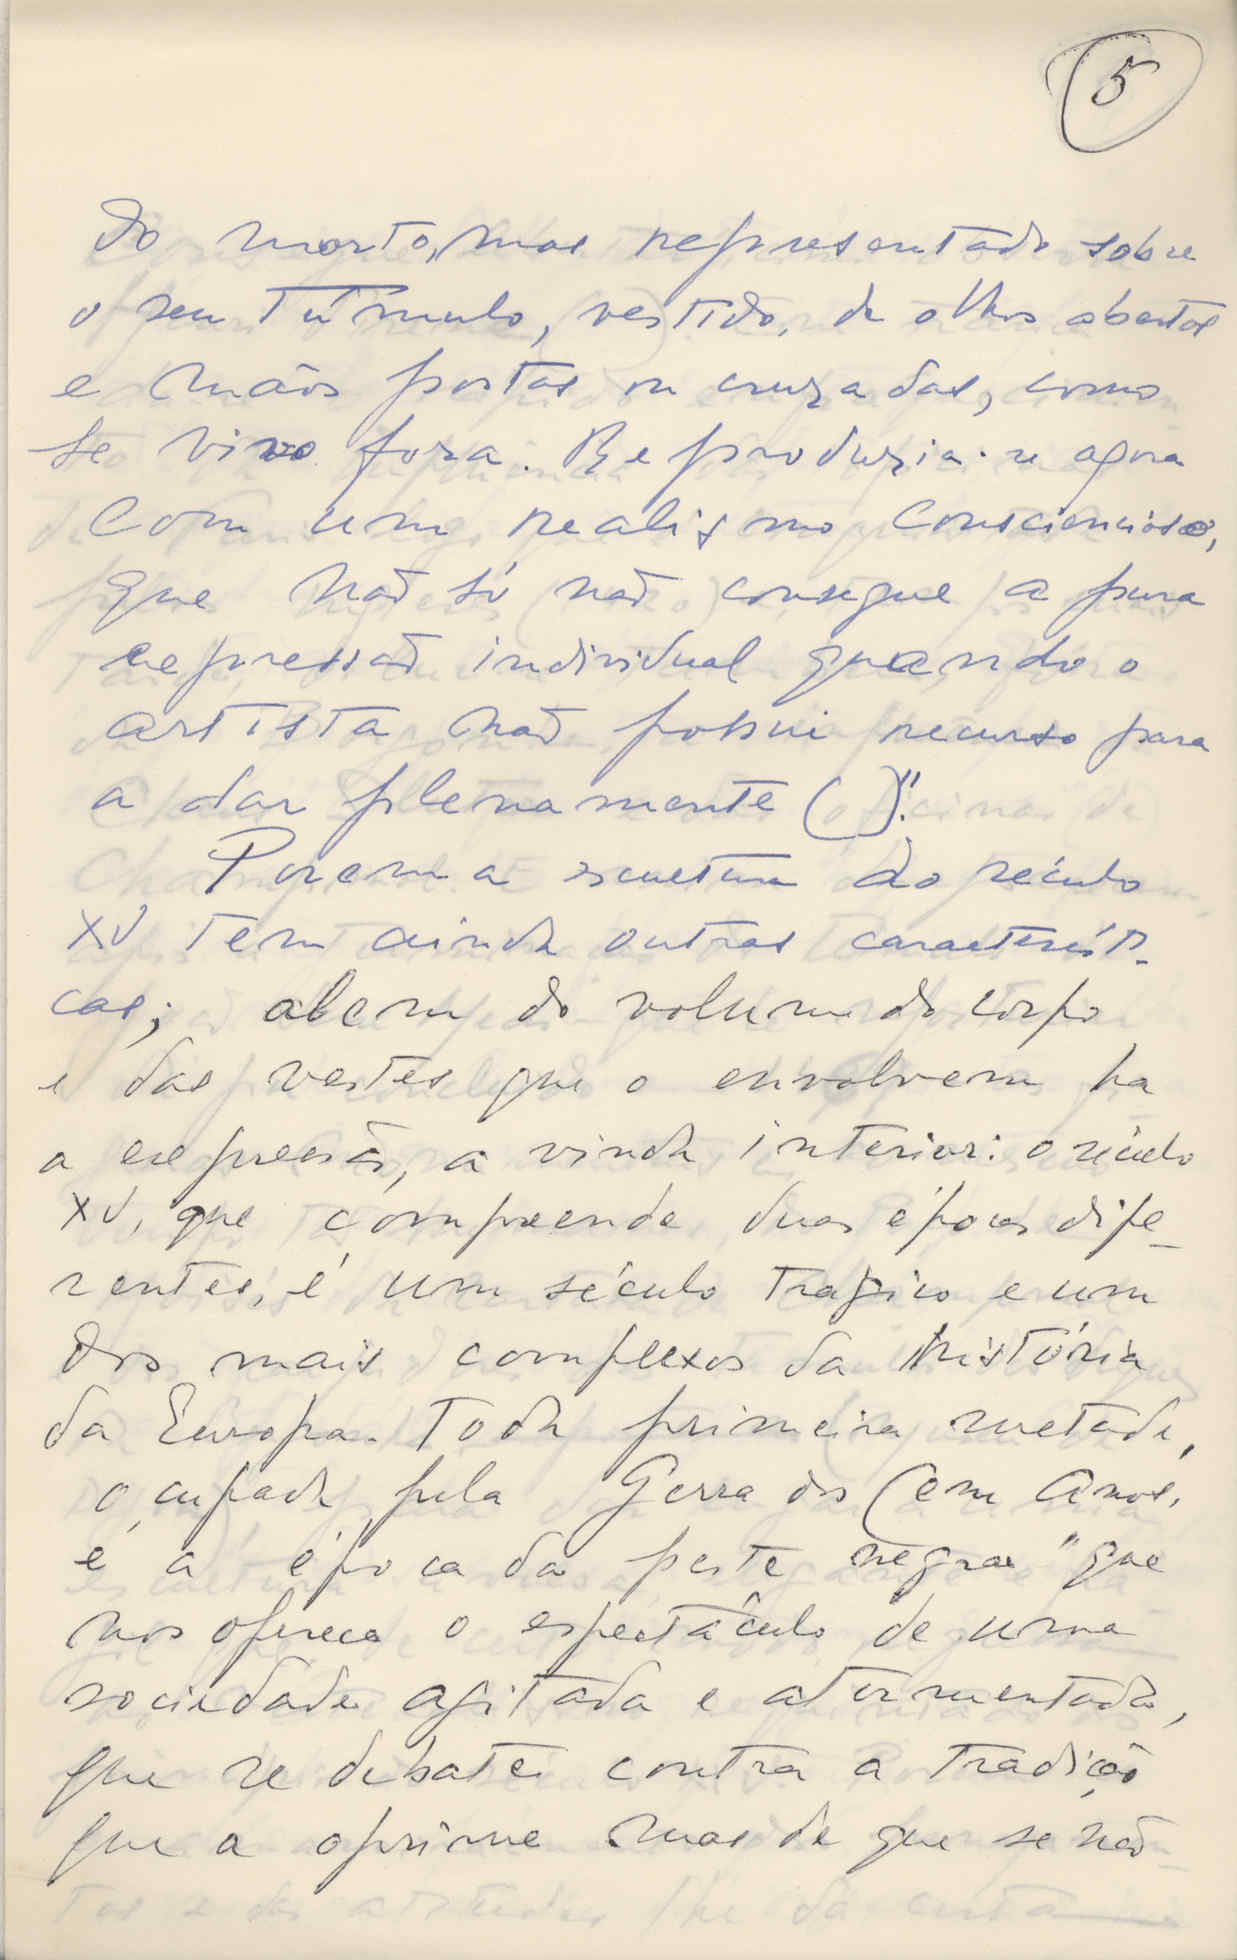 5
do morto, mas representado sobre
o seu túmulo, vestido, de olhos abertos
e mãos postas ou cruzadas, como
se vivo fora. Reproduzia-se agora
com um realismo consciencioso,
que não só não consegue a pura
expressão individual quando o
artista não possui recurso para
a dar plenamente ( )".
Porem a escultura do século
XV tem ainda outras caracterís-
cas; alem do volume do corpo
e das vestes que o envolvem ha
a expressão, a vinda interior: o século
XV, que compreende duas épocas dife-
rentes, é um século tragico e um
dos mais complexos da história
da Europa. Toda primeira metade,
ocupada pela Gerra dos Cem Anos,
é a época da peste negra "que
nos oferece o espectáculo de uma
sociedade agitada e atormentada,
que se debate contra a tradição
que a oprime mas de que se não